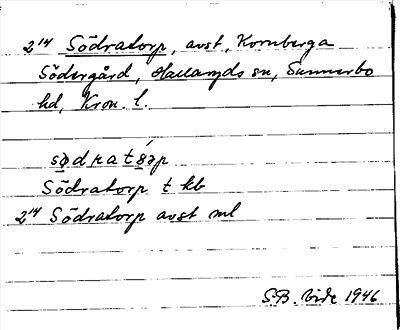 2¹⁴ Södratorp, avst, Kornberga
Södergård, Hallaryds sn, Sunnerbo
hd, Kron. l.
Södratorp t kb
2¹⁴ Södratorp avst ml
S.B. 1946